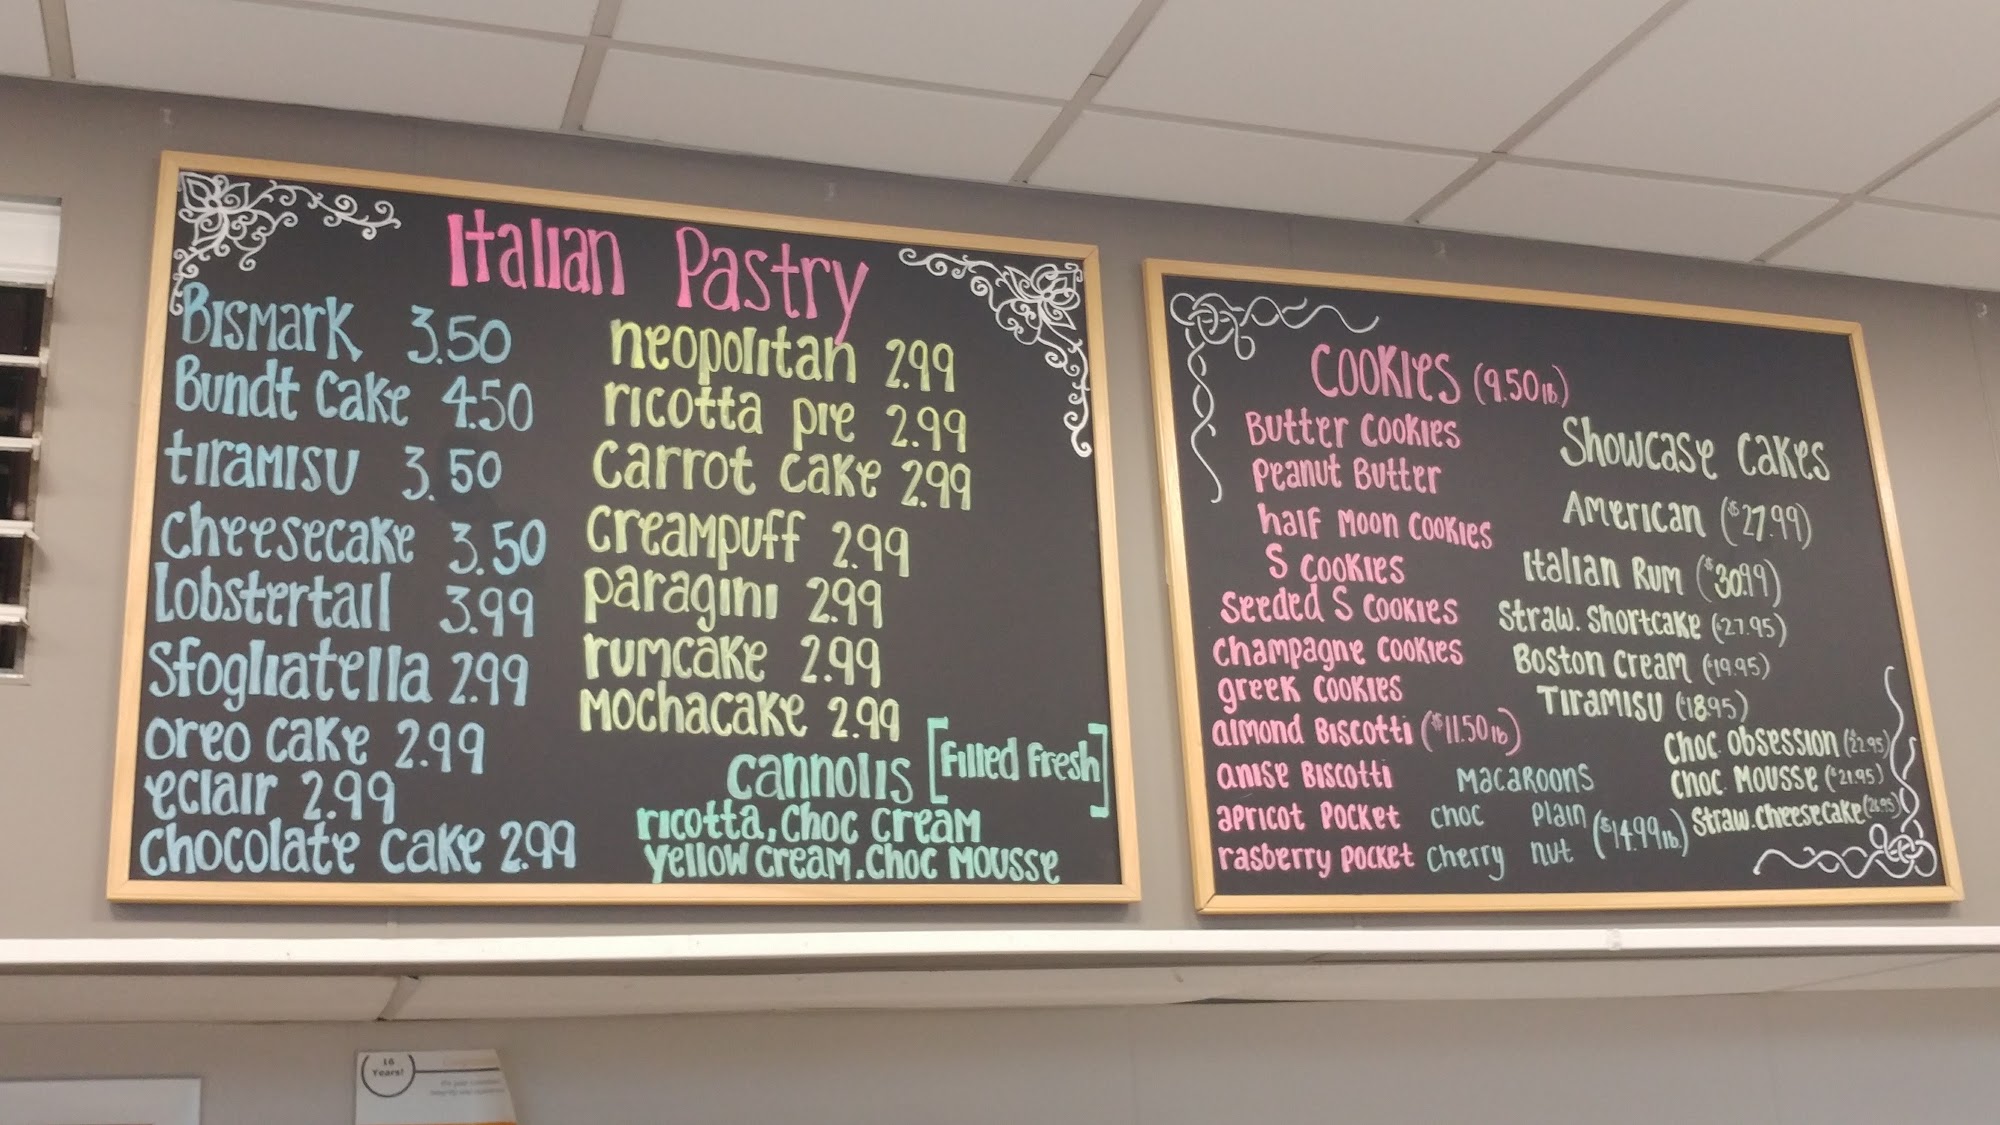 Italian Pastry
Bismark 3.50
Bundt cake 4.50
tiramisu 3.50
cheesecake 3.50
Lobstertail 3.99
Sfogliatella 2.99
oreo cake 2.99
eclair 2.99
chocolate cake 2.99
neopolitan 2.99
ricotta pie 2.99
carrot cake 2.99
creampuff 2.99
paragini 2.99
rumcake 2.99
Mochacake 2.99
cannolis [Filled Fresh]
ricotta, choc cream
yellow cream. choc Mousse
Cookies (9.50 lb.)
Butter Cookies
Peanut Butter
half Moon Cookies
S Cookies
Seeded S Cookies
champagne Cookies
greek Cookies
almond Biscotti ($11.50 lb)
anise Biscotti
apricot Pocket
rasberry Pocket
Macaroons
choc Plain
cherry nut ($14.99 lb.)
Showcase Cakes
American ($27.99)
Italian Rum ($30.99)
Straw. Shortcake ($27.95)
Boston Cream ($19.95)
Tiramisu ($18.95)
Choc. Obsession ($22.95)
Choc. Mousse ($21.95)
Straw. Cheesecake ($26.95)
16
Years!